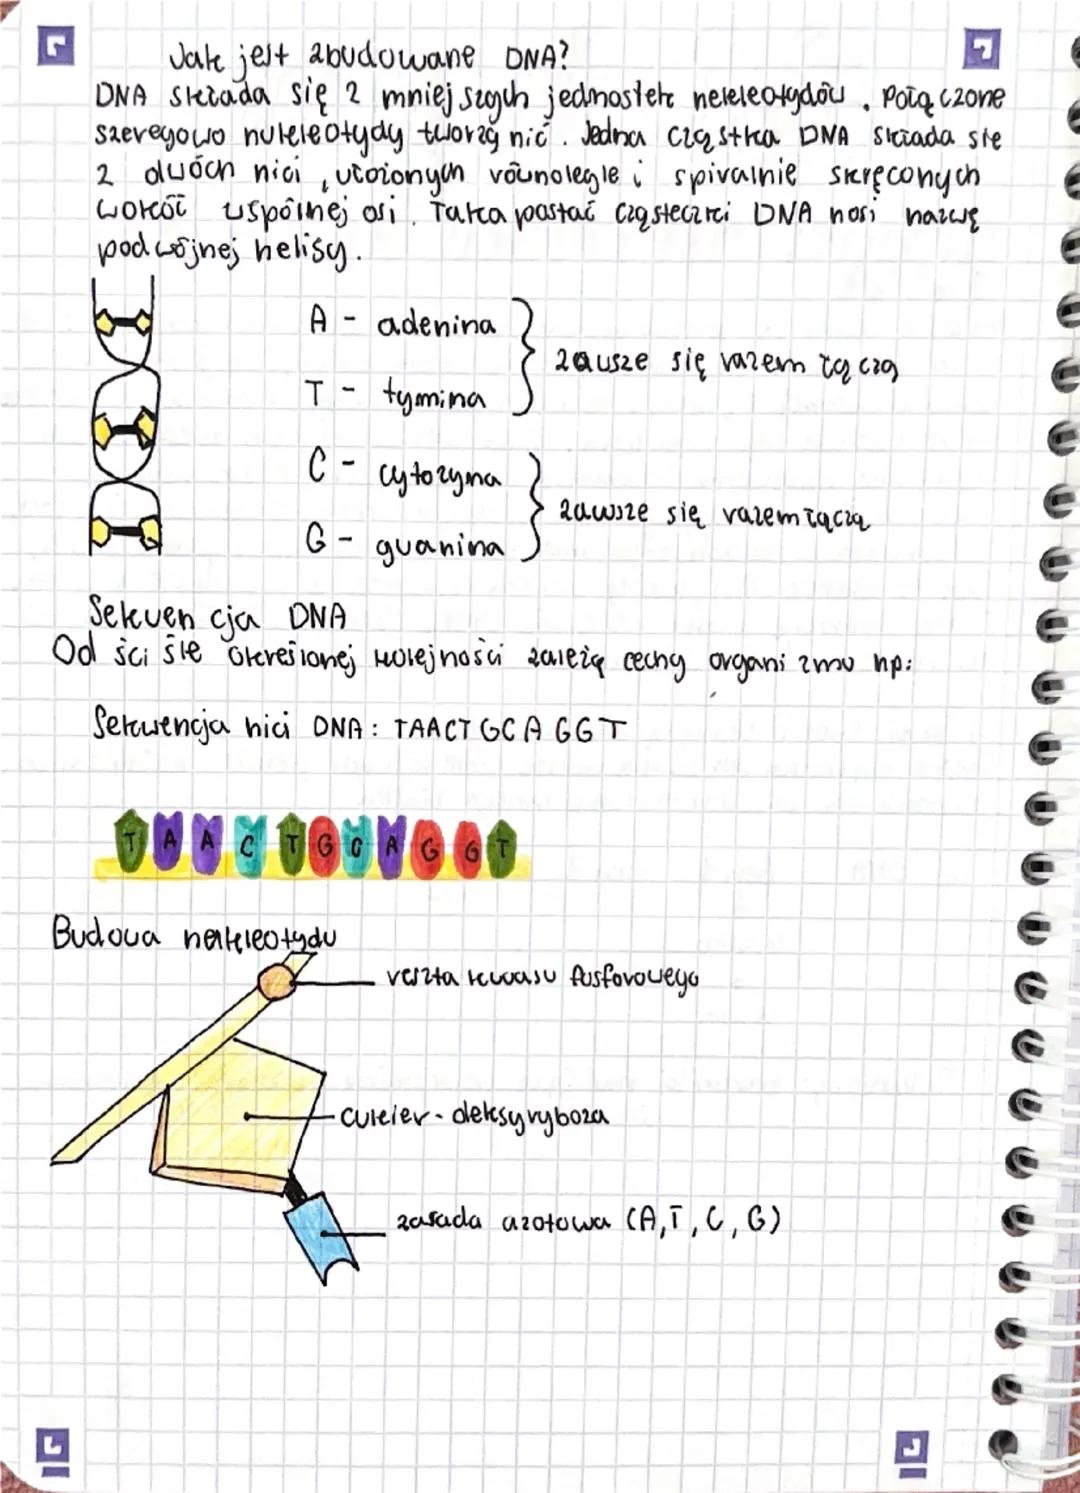 Jak jest zbudowane DNA?
DNA składa się z mniejszych jednostek nukleotydów. Połączone
szeregowo nukleotydy tworzą nić. Jedna cząstka DNA składa sie
z dwóch nici, ułożonych równolegle i spiralnie skręconych
wokół wspólnej osi. Taka postać cząsteczki DNA nosi nazwę
podwójnej helisy.
A - adenina
zawsze się razem łączą
T - tymina
C - cytozyna
zawsze się razem łączą
G - guanina
Sekwencja DNA
Od ściśle określonej kolejności zależą cechy organizmu np:
Sekwencja nici DNA: TAACTGCAGGT
T A A C T G C A G G T
Budowa nukleotydu
reszta kwasu fosforowego
cukier - deksyryboza
zasada azotowa (A, T, C, G)